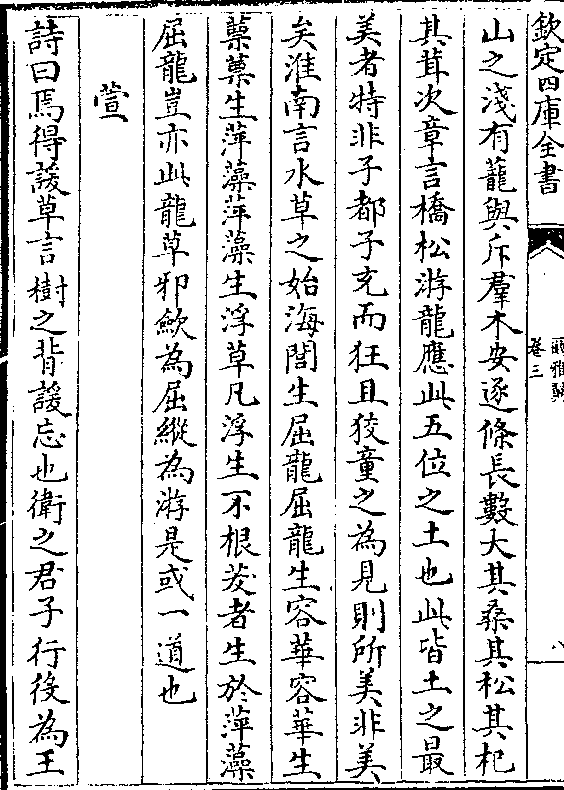 欽定四庫全書
爾雅翼
卷三
八
山之淺有蘢與斥羣木安逐條長數大其桑其松其杞
其茸次章言橋松游龍應此五位之土也此皆土之最
美者特非子都子充而狂且狡童之為見則所美非美
矣淮南言水草之始海閭生屈龍屈龍生容華容華生
蔈蔈生萍藻萍藻生浮草凡浮生不根茇者生於萍藻
屈龍豈亦此龍草邪歛為屈縱為游是或一道也
萱
詩曰焉得諼草言樹之背諼忘也衛之君子行役為王